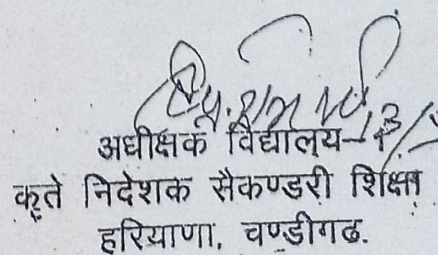 अधीक्षक विद्यालय-1
कृते निदेशक सैकण्डरी शिक्षा
हरियाणा, चण्डीगढ.